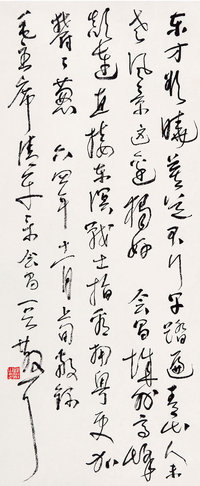 东方欲晓莫道君行早踏遍青山人未
老风景这边独好 会昌城外高峰
颠连直接东溟战士指看南粤更加
鬱〻葱〻 六四年十一月上旬敬録
毛主席清平乐会昌一首 散耳